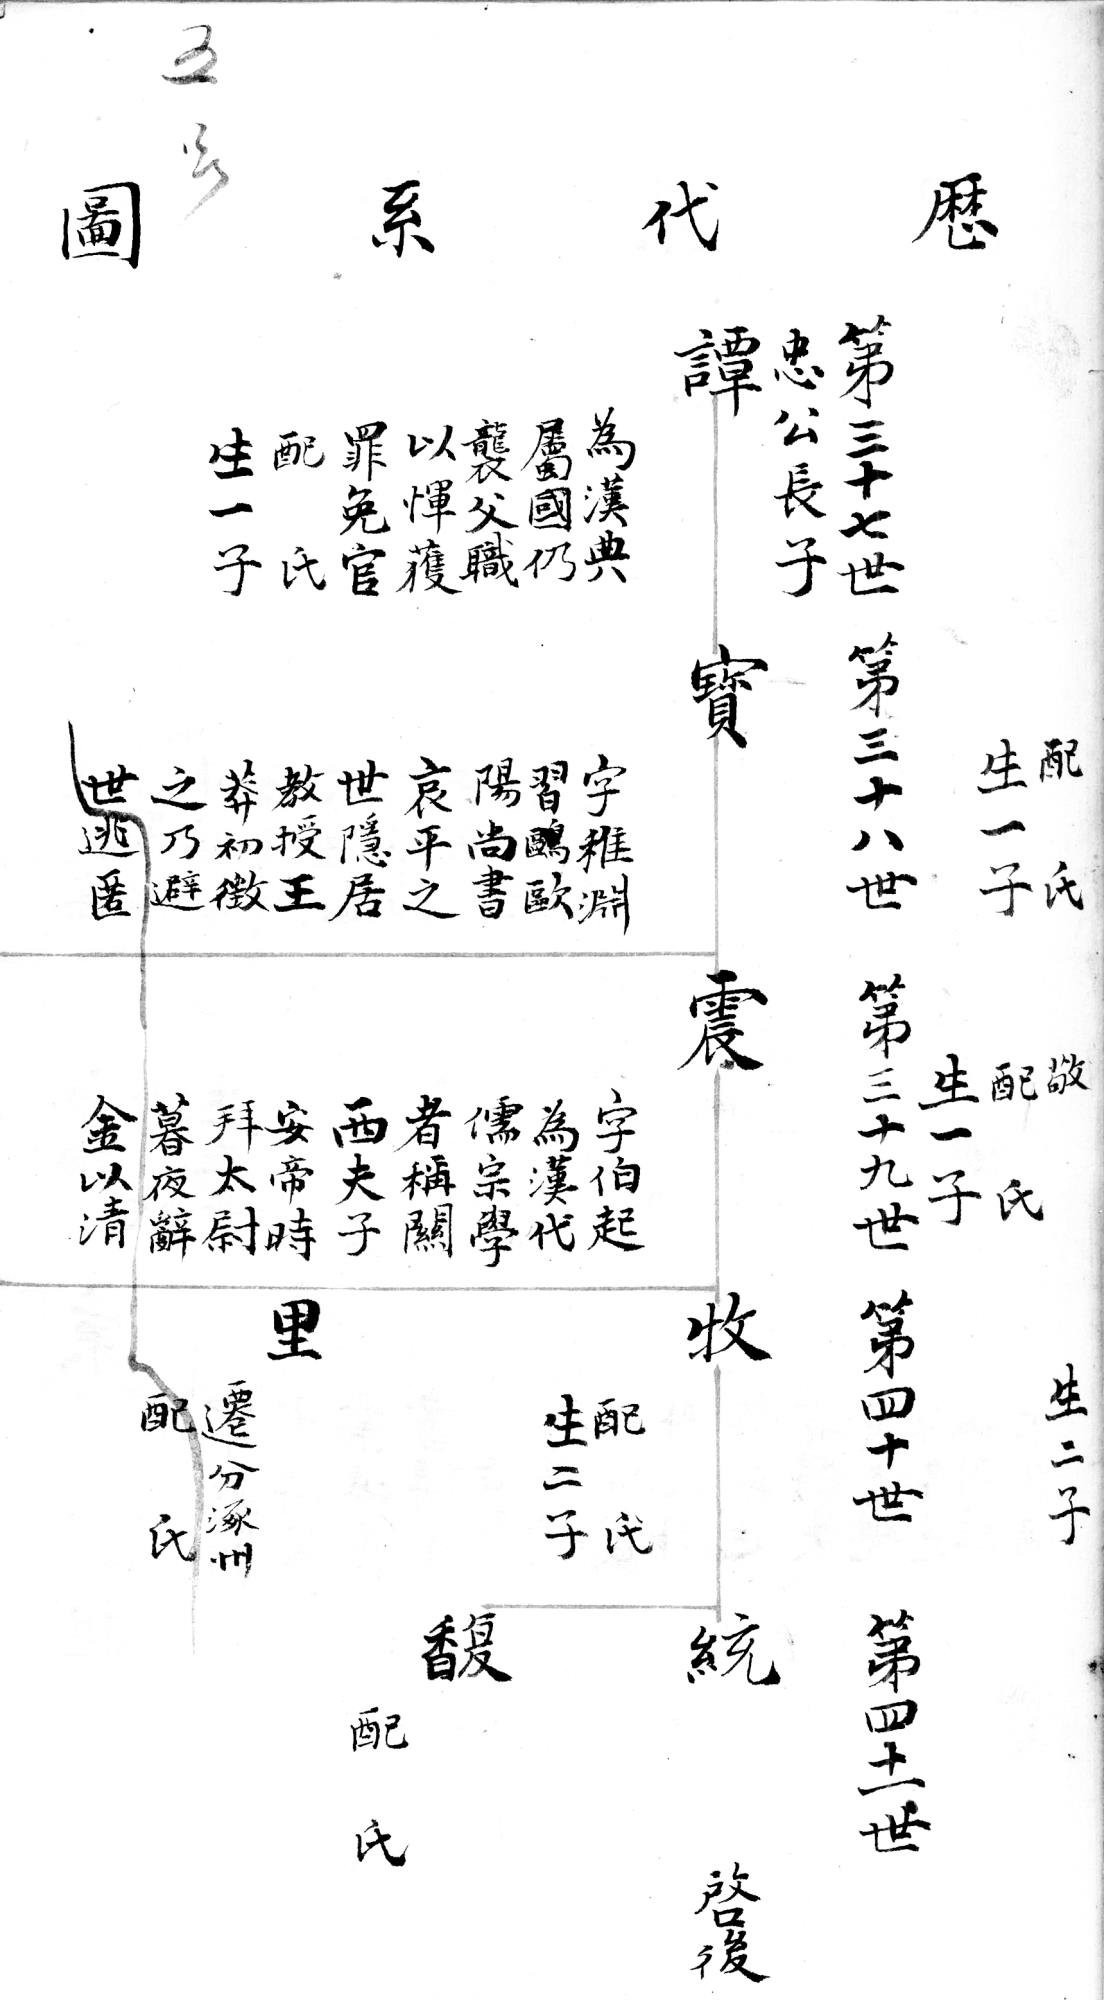 五
歷代系圖
第三十七世
忠公長子
譚
為漢典
屬國仍
襲父職
以惲獲
罪免官
配氏
生一子
配氏
生一子
第三十八世
寳
字稚淵
習鷗歐
陽尚書
哀平之
世隱居
教授王
莽初徵
之乃避
世逃匿
敬
配氏
生一子
第三十九世
震
字伯起
為漢代
儒宗學
者稱關
西夫子
安帝時
拜太尉
暮夜辭
金以清
生二子
第四十世
牧
配氏
生二子
里
遷分涿州
配氏
第四十一世
統
馥
配氏
啓後